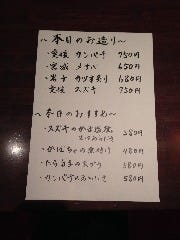 ～本日のお造り～
・愛媛 カンパチ 750円
・宮城 メナル 650円
・岩手 カツオ 680円
愛媛 スズキ 750円
～本日のおすすめ～
・スズキのかま塩焼 580円
・かぼちゃの煮付け 480円
・たら白子の天ぷら 580円
・カンパチの 580円